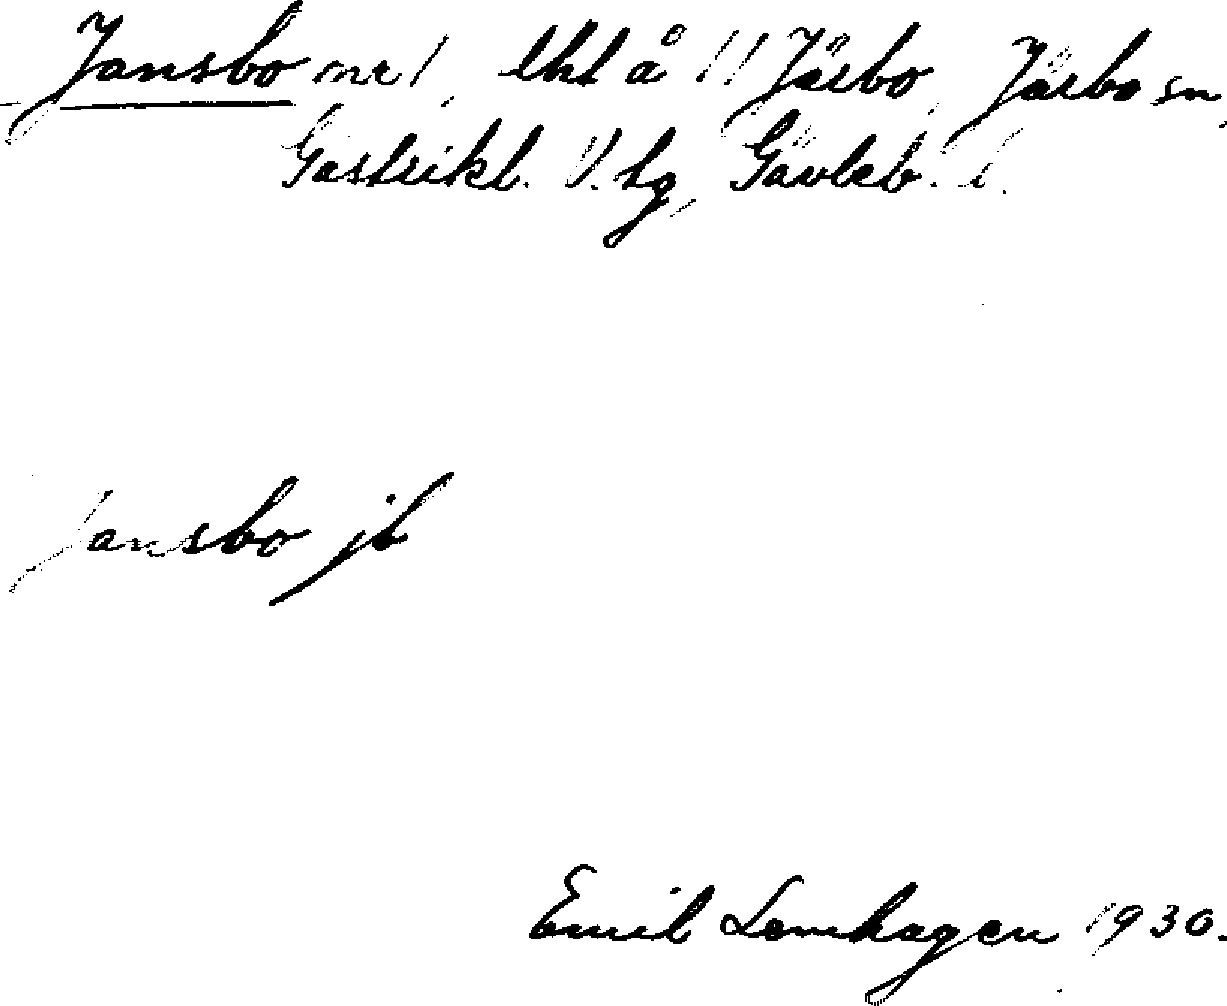 Jansbo nr 1, lht å 11 Järbo, Järbo sn,
Gästrikl. V. tg, Gävleb. l.
Jansbo jb
Emil Lemhagen 1930.